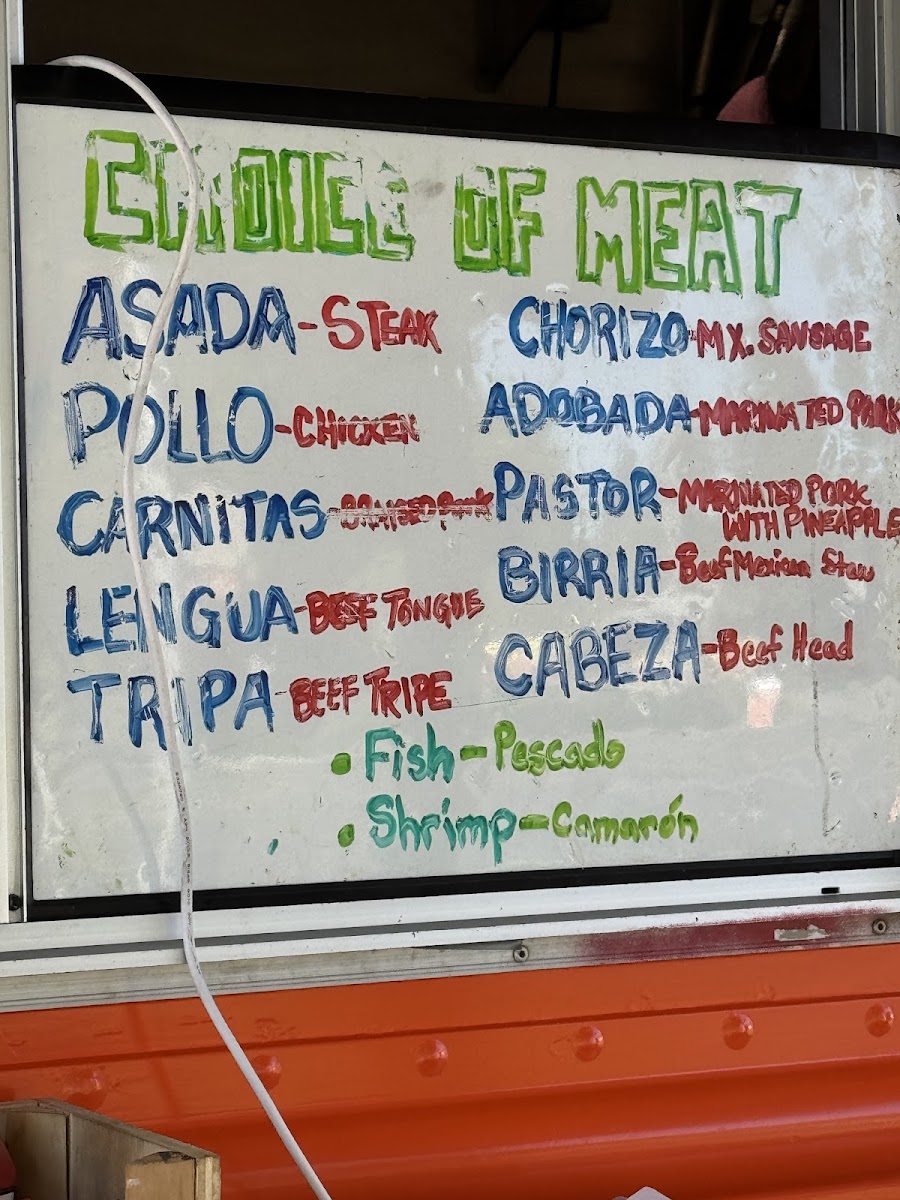 CHOICE OF MEAT
ASADA-STEAK
POLLO-CHICKEN
CARNITAS-BRAISED PORK
LENGUA-BEEF TONGUE
TRIPA-BEEF TRIPE
CHORIZO-MX. SAUSAGE
ADOBADA-MARINATED PORK
PASTOR-MARINATED PORK
WITH PINEAPPLE
BIRRIA-Beef Mexican Stew
CABEZA-Beef Head
• Fish-Pescado
• Shrimp-Camarón